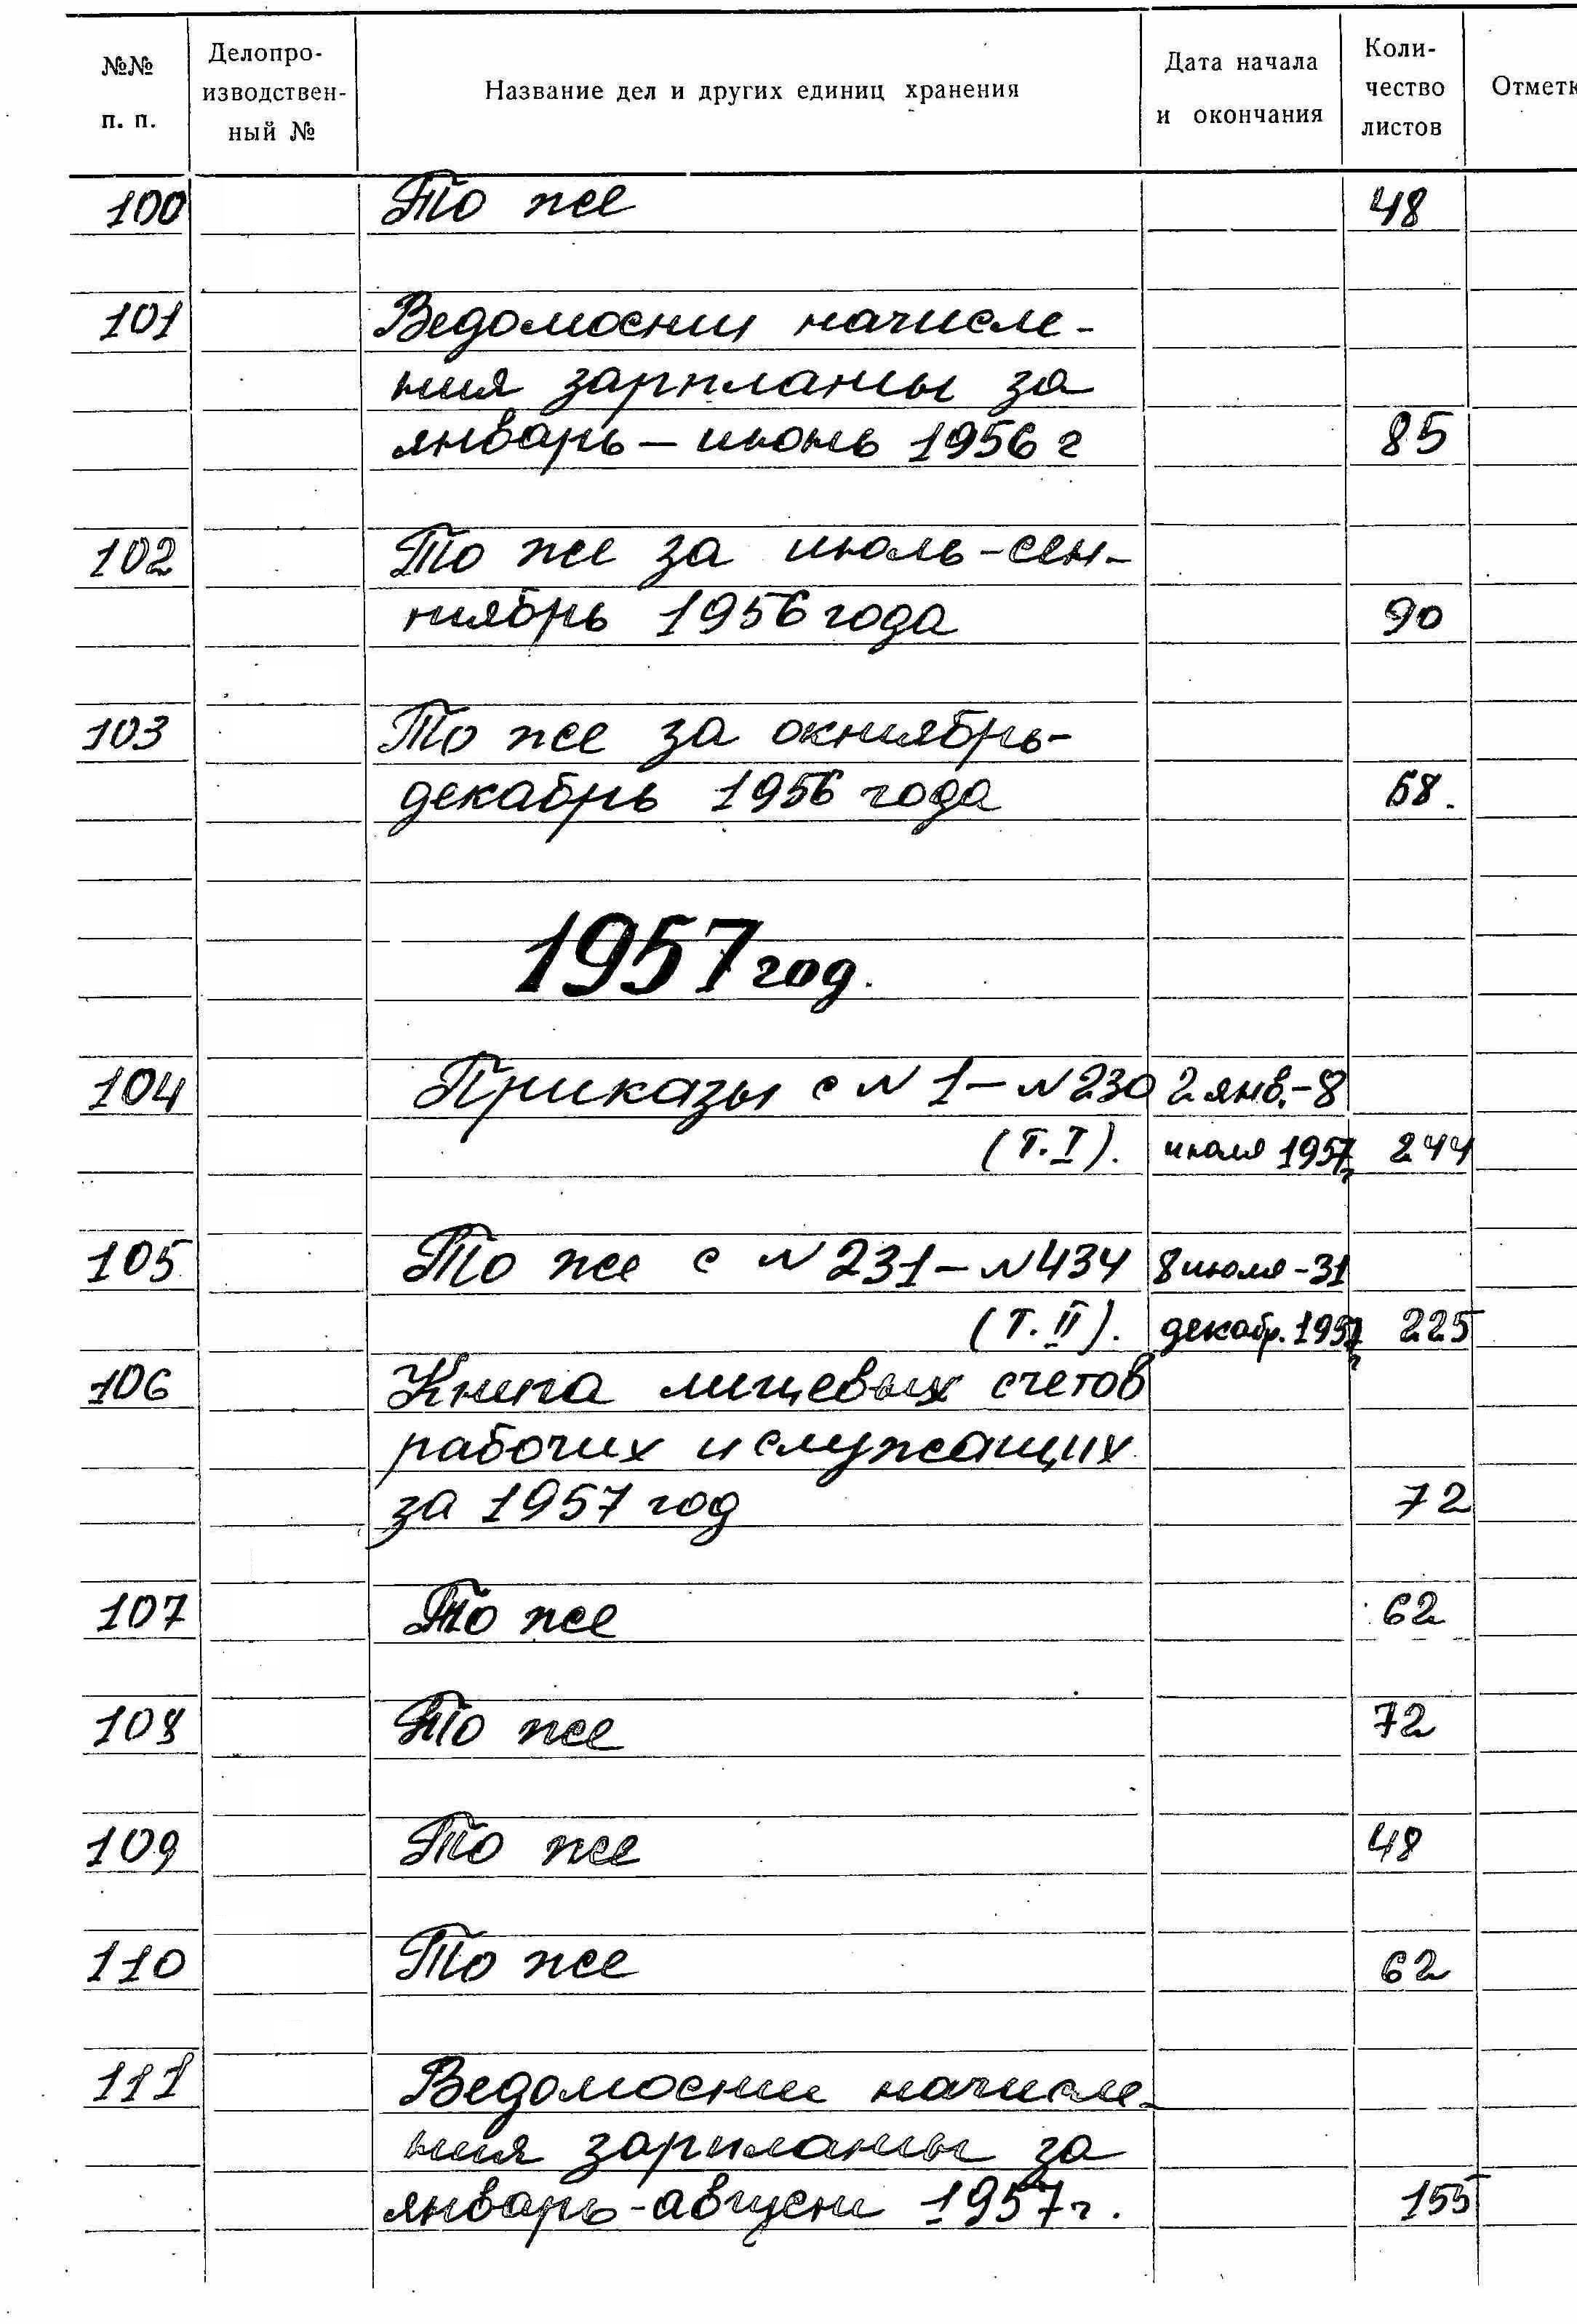 №№ п. п. Делопро-изводствен-ный № Название дел и других единиц хранения Дата начала и окончания Коли-чество листов Отметк
100 То же 48
101 Ведомости начисле-
ния зарплаты за
январь – июнь 1956 г 85
102 То же за июль-сен-
тябрь 1956 года 90
103 То же за октябрь-
декабрь 1956 года 68.
1957 год.
104 Приказы с N 1 – N 230 2 янв.-8
(т. I). июля 1957 г 244
105 То же с N 231 – N 434 8 июля -31
(т. II). декабр. 1957 г 225
106 Книга лицевых счетов
рабочих и служащих
за 1957 год 72
107 То же 62
108 То же 72
109 То же 48
110 То же 62
111 Ведомости начисле-
ния зарплаты за
январь-август 1957 г. 155